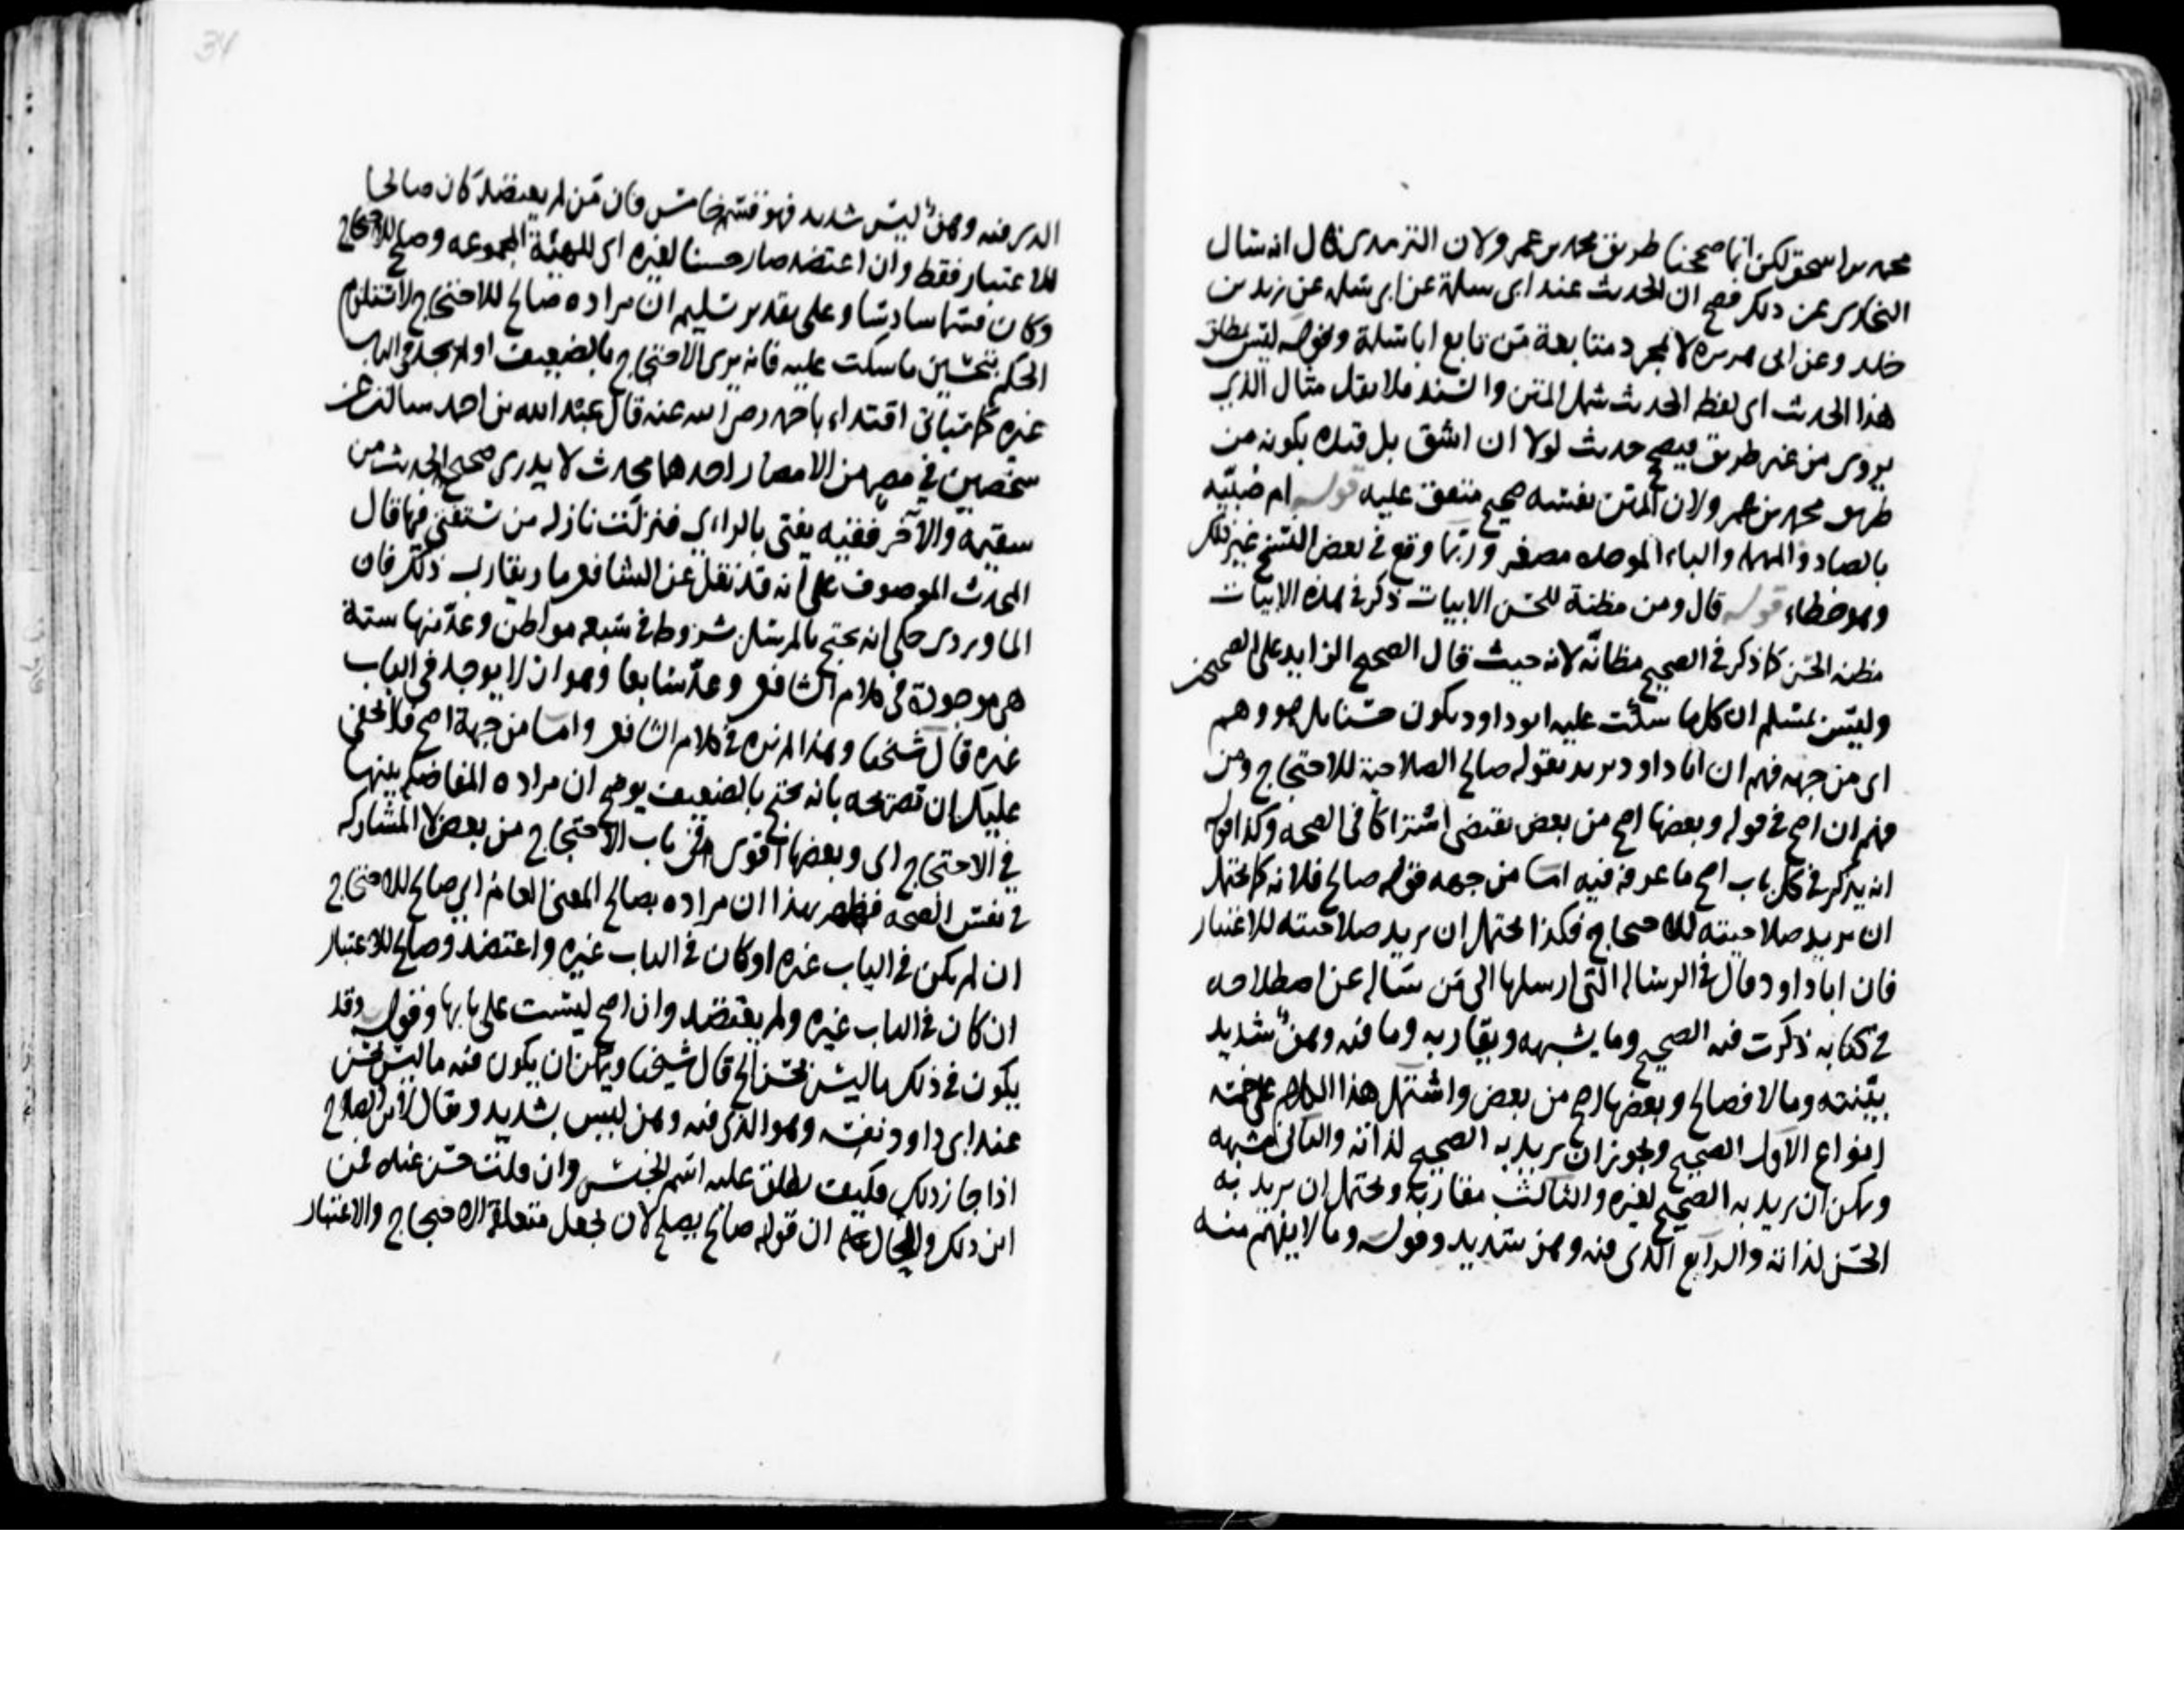 محمد بن اسحق لكن انما صححنا طريق محمد بن عمر ولان الترمذي قال انه سال
البخاري عن ذلك فصح ان الحديث عند ابي سلمة عن ابي سلمه عن زيد بن
خلد وعن ابي هريره لا لمجرد متابعة من تابع ابا سلمة وقوله ليس مطلق
هذا الحديث اي لفظ الحديث شمل المتن والسند فلا يقل مثال الذي
يروى من غير طريق فيصح حديث لولا ان اشق بل قيده بكونه من
طريق محمد بن عمر ولان المتن نفسه صحيح متفق عليه قوله ام صبيه
بالصاد المهمله والباء الموحده مصغر وربما وقع في بعض النسخ غير ذلك
وهو خطاء قوله قال ومن مظنة للحسن الابيات ذكر في هذه الابيات
مظنه الحسن كما ذكر في الصحيح مظانه لانه حيث قال الصحيح الزايد على الصحيحين
وليس بمسلم ان كل ما سكت عليه ابو داود يكون حسنا بل هو وهم
اي من جهه فهم ان ابا داود يريد بقوله صالح الصلاحية للاحتجاج ومن
فهم ان اصح في قوله وبعضها اصح من بعض يقتضي اشتراكا في الصحه وكذا قوله
انه يذكر في كل باب اصح ما عرفه فيه اما من جهه قوله صالح فلانه كما يحتمل
ان يريد صلاحيته للاحتجاج فكذا يحتمل ان يريد صلاحيته للاعتبار
فان ابا داود قال في الرساله التي ارسلها الى من ساله عن اصطلاحه
في كتابه ذكرت فيه الصحيح وما يشبهه ويقاربه وما فيه وهن شديد
بينته وما لا فصالح وبعضها اصح من بعض واشتمل هذا الكلام على خمسه
انواع الاول الصحيح ويجوز ان يريد به الصحيح لذاته والثاني مشبهه
ويمكن ان يريد به الصحيح لغيره والثالث مقاربه ويحتمل ان يريد به
الحسن لذاته والرابع الذي فيه وهن شديد وقوله وما لا يفهم منه
الذي فيه وهن ليس شديد فهو قسم خامس فان من لم يعتضد كان صالحا
للاعتبار فقط وان اعتضد صار حسنا لغيره اي للهيئة المجموعه وصلح للاحتجاج
وكان قسما سادسا وعلى تقدير تسليم ان مراده صالح للاحتجاج لا يستلزم
الحكم بتحسين ما سكت عليه فانه يرى الاحتجاج بالضعيف اذا لم يجد في الباب
غيره كما سياتي اقتداء باحمد رضي الله عنه قال عبد الله بن احمد سالت عن
شخصين في مصر من الامصار احدهما محدث لا يدري صحيح الحديث من
سقيمه والآخر فقيه يفتي بالراي فنزلت نازله من نستفتي فيها قال
المحدث الموصوف على انه قد نقل عن الشافعي ما ريقارب ذلك فان
الماوردي حكى انه يحتج بالمرسل بشروط في سبعه مواطن وعد منها ستة
هي موجودة في كلام الشافعي وعد سابعا وهو ان لا يوجد في الباب
غيره قال شيخنا وهذا لم نره في كلام الشافعي واما من جهة اصح فلا يخفى
عليك ان تصريحه بانه يحتج بالضعيف يوضح ان مراده المفاضله بينها
في الاحتجاج اي وبعضها اقوى في باب الاحتجاج من بعض لا المشاركه
في نفس الصحه فظهر بهذا ان مراده بصالح المعنى العام اي صالح للاحتجاج
ان لم يكن في الباب غيره او كان في الباب غيره واعتضد وصالح للاعتبار
ان كان في الباب غيره ولم يعتضد وان اصح ليست على بابها وقوله وقد
يكون في ذلك ما ليس بحسن الخ قال شيخنا ويمكن ان يكون فيه ما ليس بحسن
عند ابي داود نفسه وهو الذي فيه وهن ليس بشديد وقال لابن الصلاح
اذا جاز ذلك فكيف يطلق عليه اسم الحسن وان قلت حسن عنده فمن
اين ذلك والحال ان قوله صالح يصلح لان يجعل متعلقه الاحتجاج والاعتبار